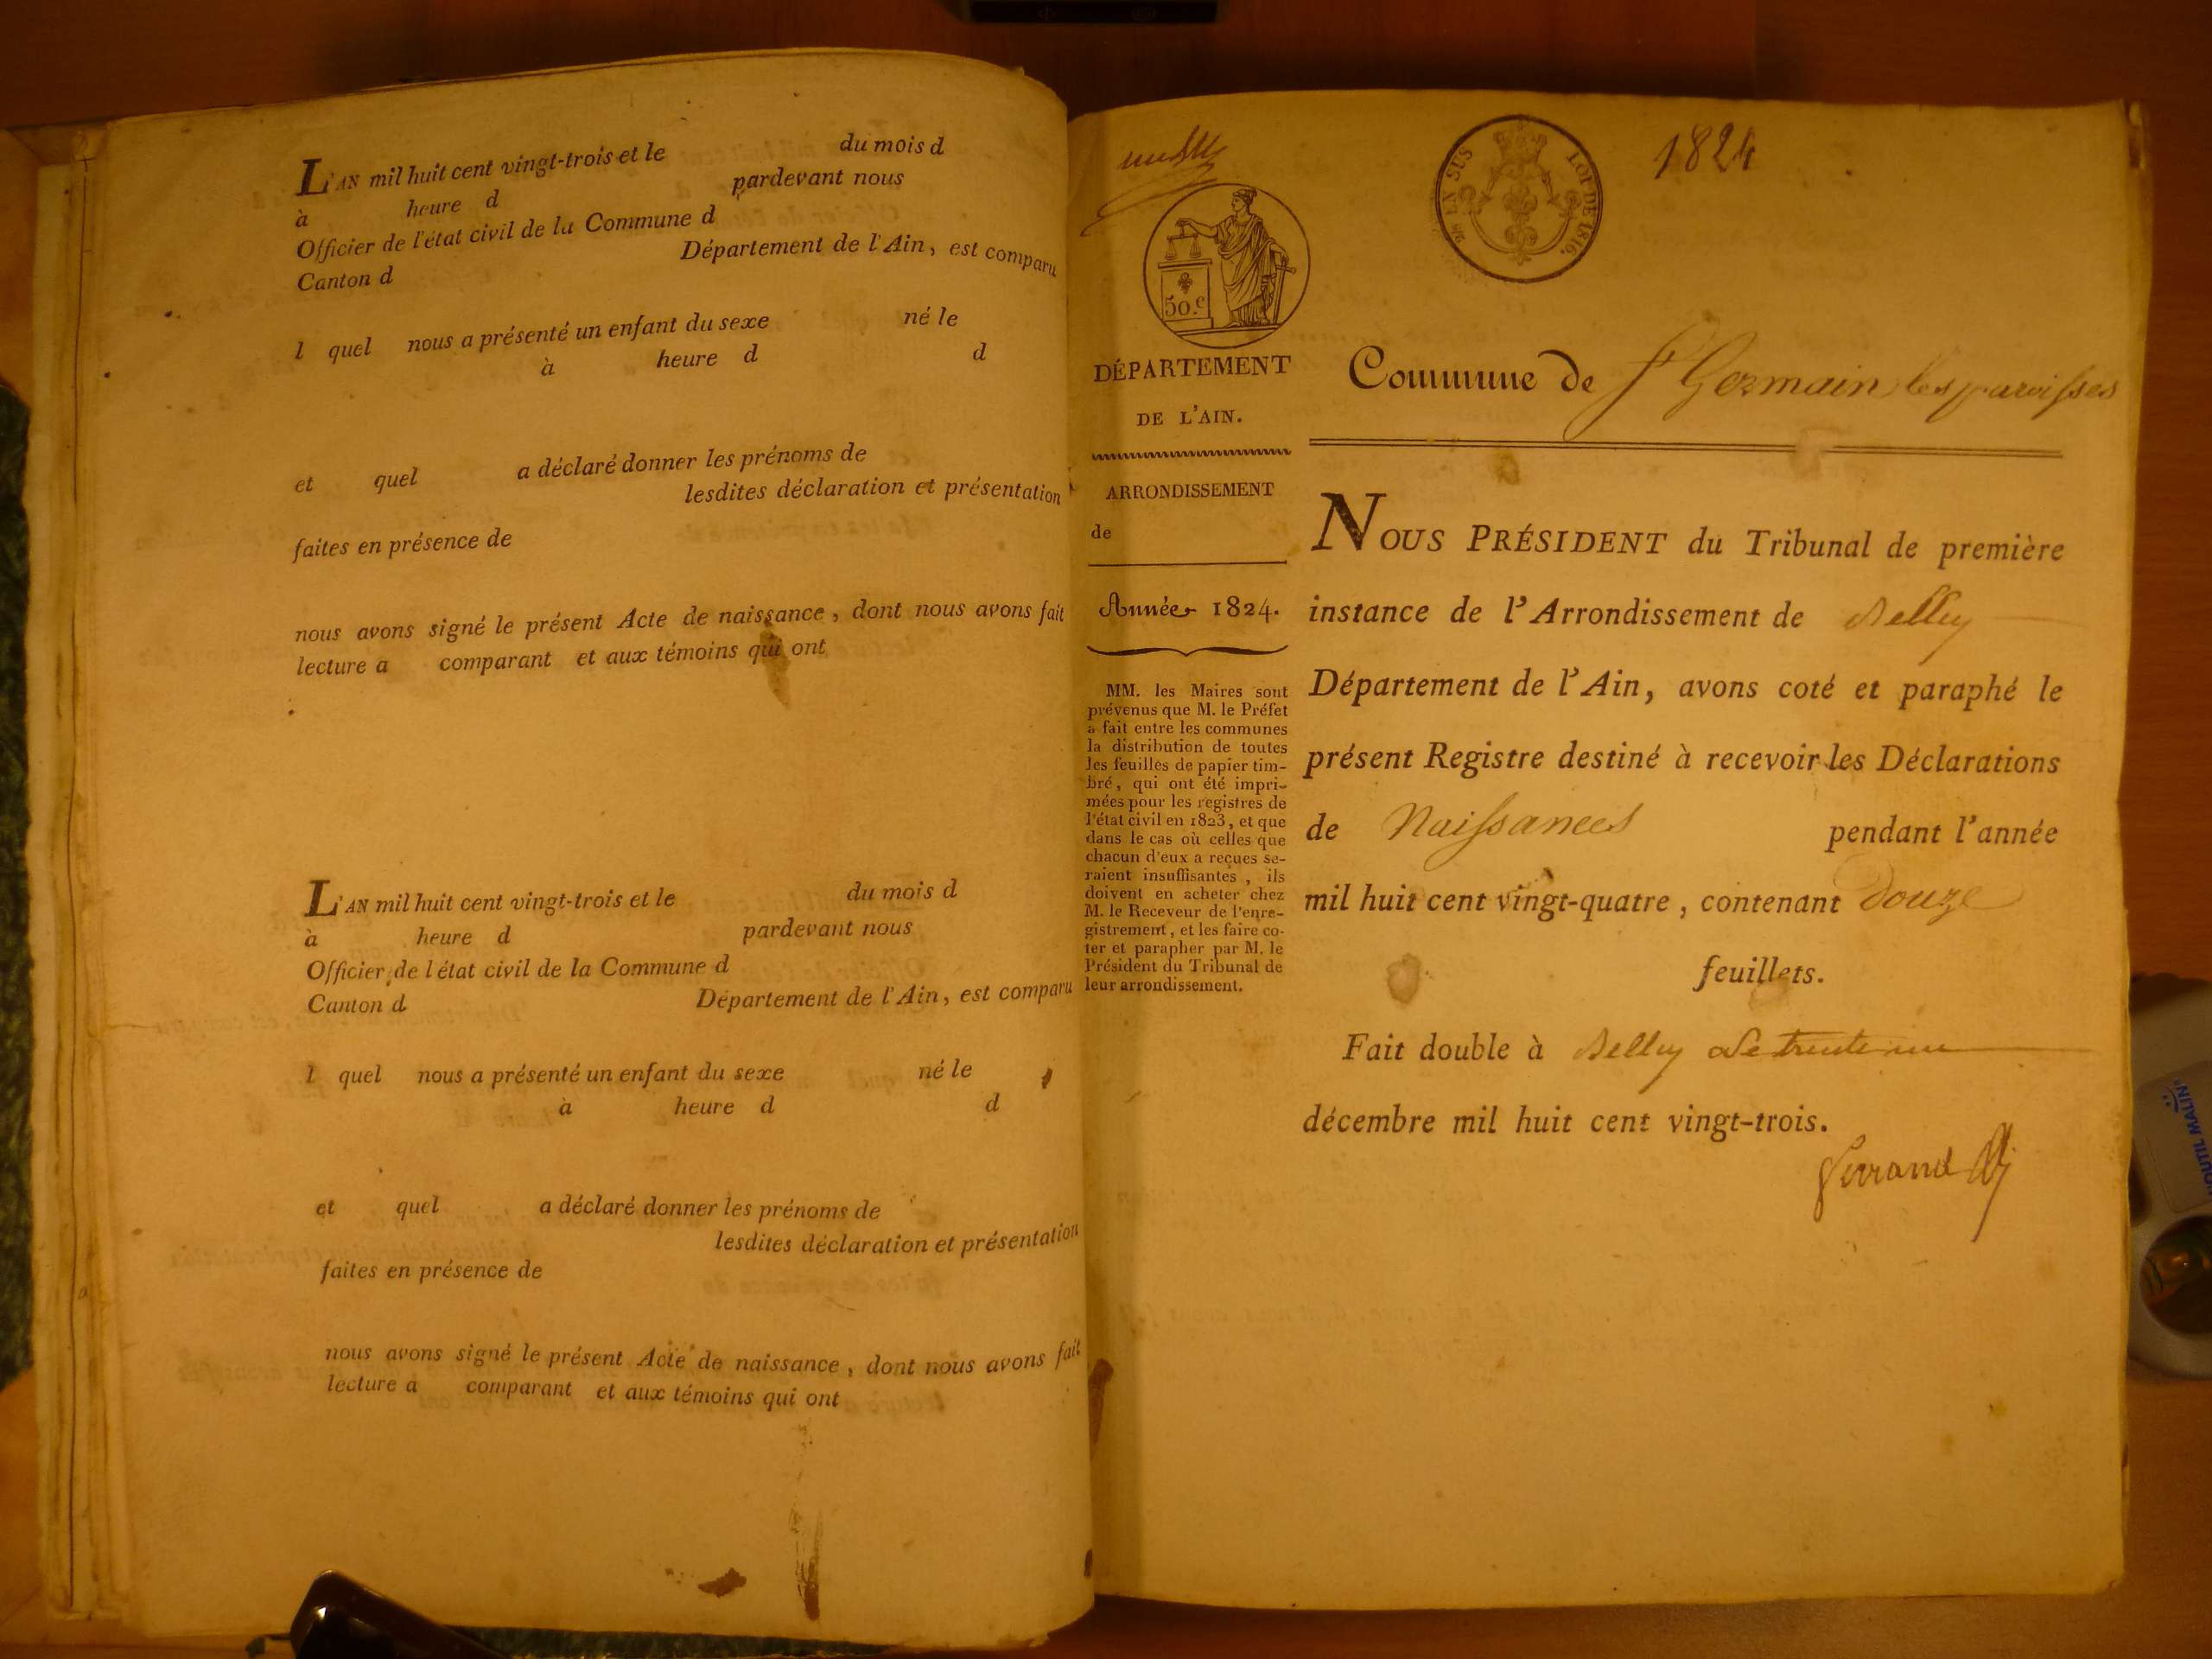 L'AN mil huit cent vingt-trois et le du mois d
à heure d pardevant nous
Officier de l'état civil de la Commune d
Canton d Département de l'Ain, est comparu
l quel nous a présenté un enfant du sexe né le
à heure d d
et quel a déclaré donner les prénoms de
lesdites déclaration et présentation
faites en présence de
nous avons signé le présent Acte de naissance, dont nous avons fait
lecture a comparant et aux témoins qui ont
L'AN mil huit cent vingt-trois et le du mois d
à heure d pardevant nous
Officier de l'état civil de la Commune d
Canton d Département de l'Ain, est comparu
l quel nous a présenté un enfant du sexe né le
à heure d d
et quel a déclaré donner les prénoms de
lesdites déclaration et présentation
faites en présence de
nous avons signé le présent Acte de naissance, dont nous avons fait
lecture a comparant et aux témoins qui ont
1824
EN SUS LOI DE 1816.
50.c
DÉPARTEMENT
DE L'AIN.
ARRONDISSEMENT
de
Année 1824.
MM. les Maires sont
prévenus que M. le Préfet
a fait entre les communes
la distribution de toutes
les feuilles de papier tim-
bré, qui ont été impri-
mées pour les registres de
l'état civil en 1823, et que
dans le cas où celles que
chacun d'eux a reçues se-
raient insuffisantes, ils
doivent en acheter chez
M. le Receveur de l'enre-
gistrement, et les faire co-
ter et parapher par M. le
Président du Tribunal de
leur arrondissement.
Commune de St Germain les paroisses
NOUS PRÉSIDENT du Tribunal de première
instance de l'Arrondissement de Belley
Département de l'Ain, avons coté et paraphé le
présent Registre destiné à recevoir les Déclarations
de Naissances pendant l'année
mil huit cent vingt-quatre, contenant Douze
feuillets.
Fait double à Belley le trente un
décembre mil huit cent vingt-trois.
OUTIL MALIN